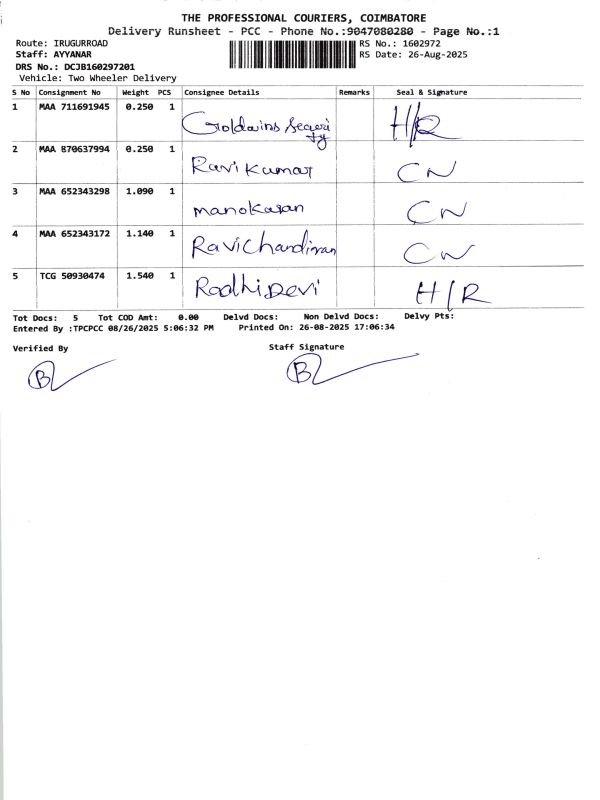 THE PROFESSIONAL COURIERS, COIMBATORE
Delivery Runsheet - PCC - Phone No.:9047080280 - Page No.:1
Route: IRUGURROAD RS No.: 1602972
Staff: AYYANAR RS Date: 26-Aug-2025
DRS No.: DCJB160297201
Vehicle: Two Wheeler Delivery
S No Consignment No Weight PCS Consignee Details Remarks Seal & Signature
1 MAA 711691945 0.250 1 Goldwins H/R
2 MAA 870637994 0.250 1 Ravi Kumar CN
3 MAA 652343298 1.090 1 manokaran CN
4 MAA 652343172 1.140 1 Ravichandiran CN
5 TCG 50930474 1.540 1 RadhiDevi H/R
Tot Docs: 5 Tot COD Amt: 0.00 Delvd Docs: Non Delvd Docs: Delvy Pts:
Entered By :TPCPCC 08/26/2025 5:06:32 PM Printed On: 26-08-2025 17:06:34
Verified By Staff Signature